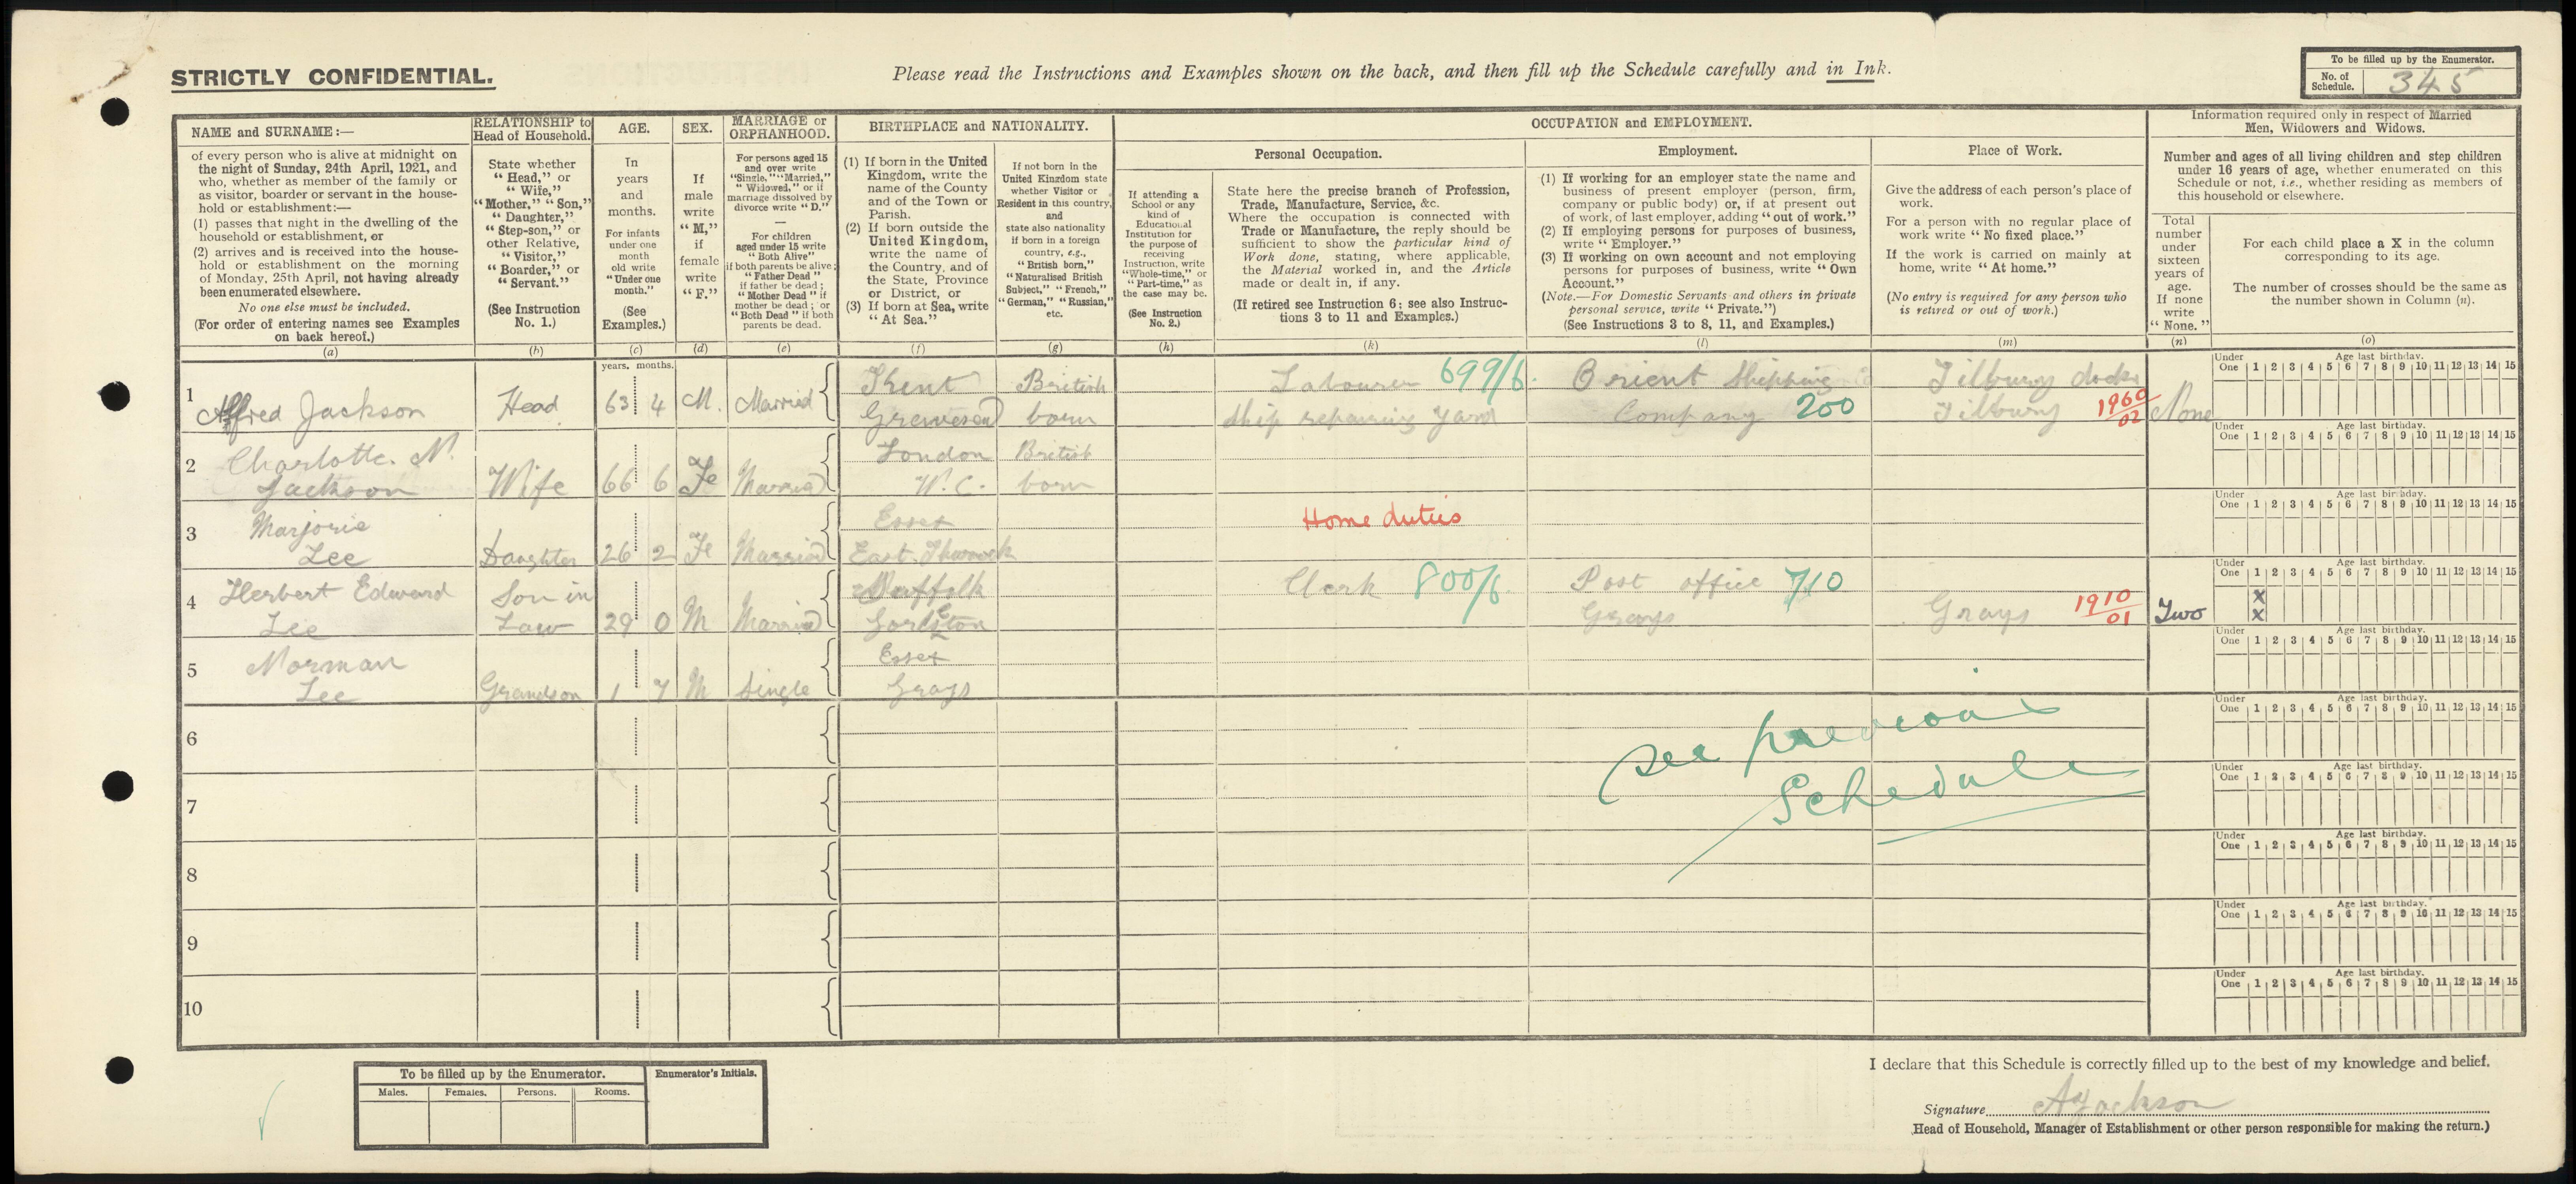 STRICTLY CONFIDENTIAL.
Please read the Instructions and Examples shown on the back, and then fill up the Schedule carefully and in Ink.
To be filled up by the Enumerator.
No. of Schedule. 345
NAME and SURNAME:—
of every person who is alive at midnight on
the night of Sunday, 24th April, 1921, and
who, whether as member of the family or
as visitor, boarder or servant in the house-
hold or establishment:—
(1) passes that night in the dwelling of the
household or establishment, or
(2) arrives and is received into the house-
hold or establishment on the morning
of Monday, 25th April, not having already
been enumerated elsewhere.
No one else must be included.
(For order of entering names see Examples
on back hereof.)
(a)
RELATIONSHIP to
Head of Household.
State whether
"Head," or
"Wife,"
"Mother," "Son,"
"Daughter,"
"Step-son," or
other Relative,
"Visitor,"
"Boarder," or
"Servant."
(See Instruction
No. 1.)
(b)
AGE.
In
years
and
months.
For infants
under one
month
old write
"Under one
month."
(See
Examples.)
(c)
SEX.
If
male
write
"M,"
if
female
write
"F."
(d)
MARRIAGE or
ORPHANHOOD.
For persons aged 15
and over write
"Single," "Married,"
"Widowed," or if
marriage dissolved by
divorce write "D."
—
For children
aged under 15 write
"Both Alive"
if both parents be alive;
"Father Dead"
if father be dead;
"Mother Dead" if
mother be dead; or
"Both Dead" if both
parents be dead.
(e)
BIRTHPLACE and NATIONALITY.
(1) If born in the United
Kingdom, write the
name of the County
and of the Town or
Parish.
(2) If born outside the
United Kingdom,
write the name of
the Country, and of
the State, Province
or District, or
(3) If born at Sea, write
"At Sea."
(f)
If not born in the
United Kingdom state
whether Visitor or
Resident in this country,
and
state also nationality
if born in a foreign
country, e.g.,
"British born,"
"Naturalised British
Subject," "French,"
"German," "Russian,"
etc.
(g)
OCCUPATION and EMPLOYMENT.
Personal Occupation.
If attending a
School or any
kind of
Educational
Institution for
the purpose of
receiving
Instruction, write
"Whole-time," or
"Part-time," as
the case may be.
(See Instruction
No. 2.)
(h)
State here the precise branch of Profession,
Trade, Manufacture, Service, &c.
Where the occupation is connected with
Trade or Manufacture, the reply should be
sufficient to show the particular kind of
Work done, stating, where applicable,
the Material worked in, and the Article
made or dealt in, if any.
(If retired see Instruction 6; see also Instruc-
tions 3 to 11 and Examples.)
(k)
Employment.
(1) If working for an employer state the name and
business of present employer (person, firm,
company or public body) or, if at present out
of work, of last employer, adding "out of work."
(2) If employing persons for purposes of business,
write "Employer."
(3) If working on own account and not employing
persons for purposes of business, write "Own
Account."
(Note.—For Domestic Servants and others in private
personal service, write "Private.")
(See Instructions 3 to 8, 11, and Examples.)
(l)
Place of Work.
Give the address of each person's place of
work.
For a person with no regular place of
work write "No fixed place."
If the work is carried on mainly at
home, write "At home."
(No entry is required for any person who
is retired or out of work.)
(m)
Information required only in respect of Married
Men, Widowers and Widows.
Number and ages of all living children and step children
under 16 years of age, whether enumerated on this
Schedule or not, i.e., whether residing as members of
this household or elsewhere.
Total
number
under
sixteen
years of
age.
If none
write
"None."
(n)
For each child place a X in the column
corresponding to its age.
The number of crosses should be the same as
the number shown in Column (n).
(o)
years. months.
Under One Age last birthday. 1 2 3 4 5 6 7 8 9 10 11 12 13 14 15
1 Alfred Jackson Head 63 4 M. Married Kent Gravesend British born Labourer 699/6. ship repairing yard Orient Shipping Company 200 Tilbury docks Tilbury 1960/02 None
Under One Age last birthday. 1 2 3 4 5 6 7 8 9 10 11 12 13 14 15
2 Charlotte. N. Jackson Wife 66 6 Fe Married London W.C. British born
Under One Age last birthday. 1 2 3 4 5 6 7 8 9 10 11 12 13 14 15
3 Marjorie Lee Daughter 26 2 Fe Married Essex East Thurrock Home duties
Under One Age last birthday. 1 2 3 4 5 6 7 8 9 10 11 12 13 14 15
4 Herbert Edward Lee Son in Law 29 0 M Married Suffolk Gorleston Clerk 800/6. Post office 710 Grays Grays 1910/01 Two x x
Under One Age last birthday. 1 2 3 4 5 6 7 8 9 10 11 12 13 14 15
5 Norman Lee Grandson 1 7 M Single Essex Grays
Under One Age last birthday. 1 2 3 4 5 6 7 8 9 10 11 12 13 14 15
6
see previous
Under One Age last birthday. 1 2 3 4 5 6 7 8 9 10 11 12 13 14 15
7
Schedule
Under One Age last birthday. 1 2 3 4 5 6 7 8 9 10 11 12 13 14 15
8
Under One Age last birthday. 1 2 3 4 5 6 7 8 9 10 11 12 13 14 15
9
Under One Age last birthday. 1 2 3 4 5 6 7 8 9 10 11 12 13 14 15
10
To be filled up by the Enumerator.
Males. Females. Persons. Rooms.
Enumerator's Initials.
I declare that this Schedule is correctly filled up to the best of my knowledge and belief.
Signature A Jackson
Head of Household, Manager of Establishment or other person responsible for making the return.)